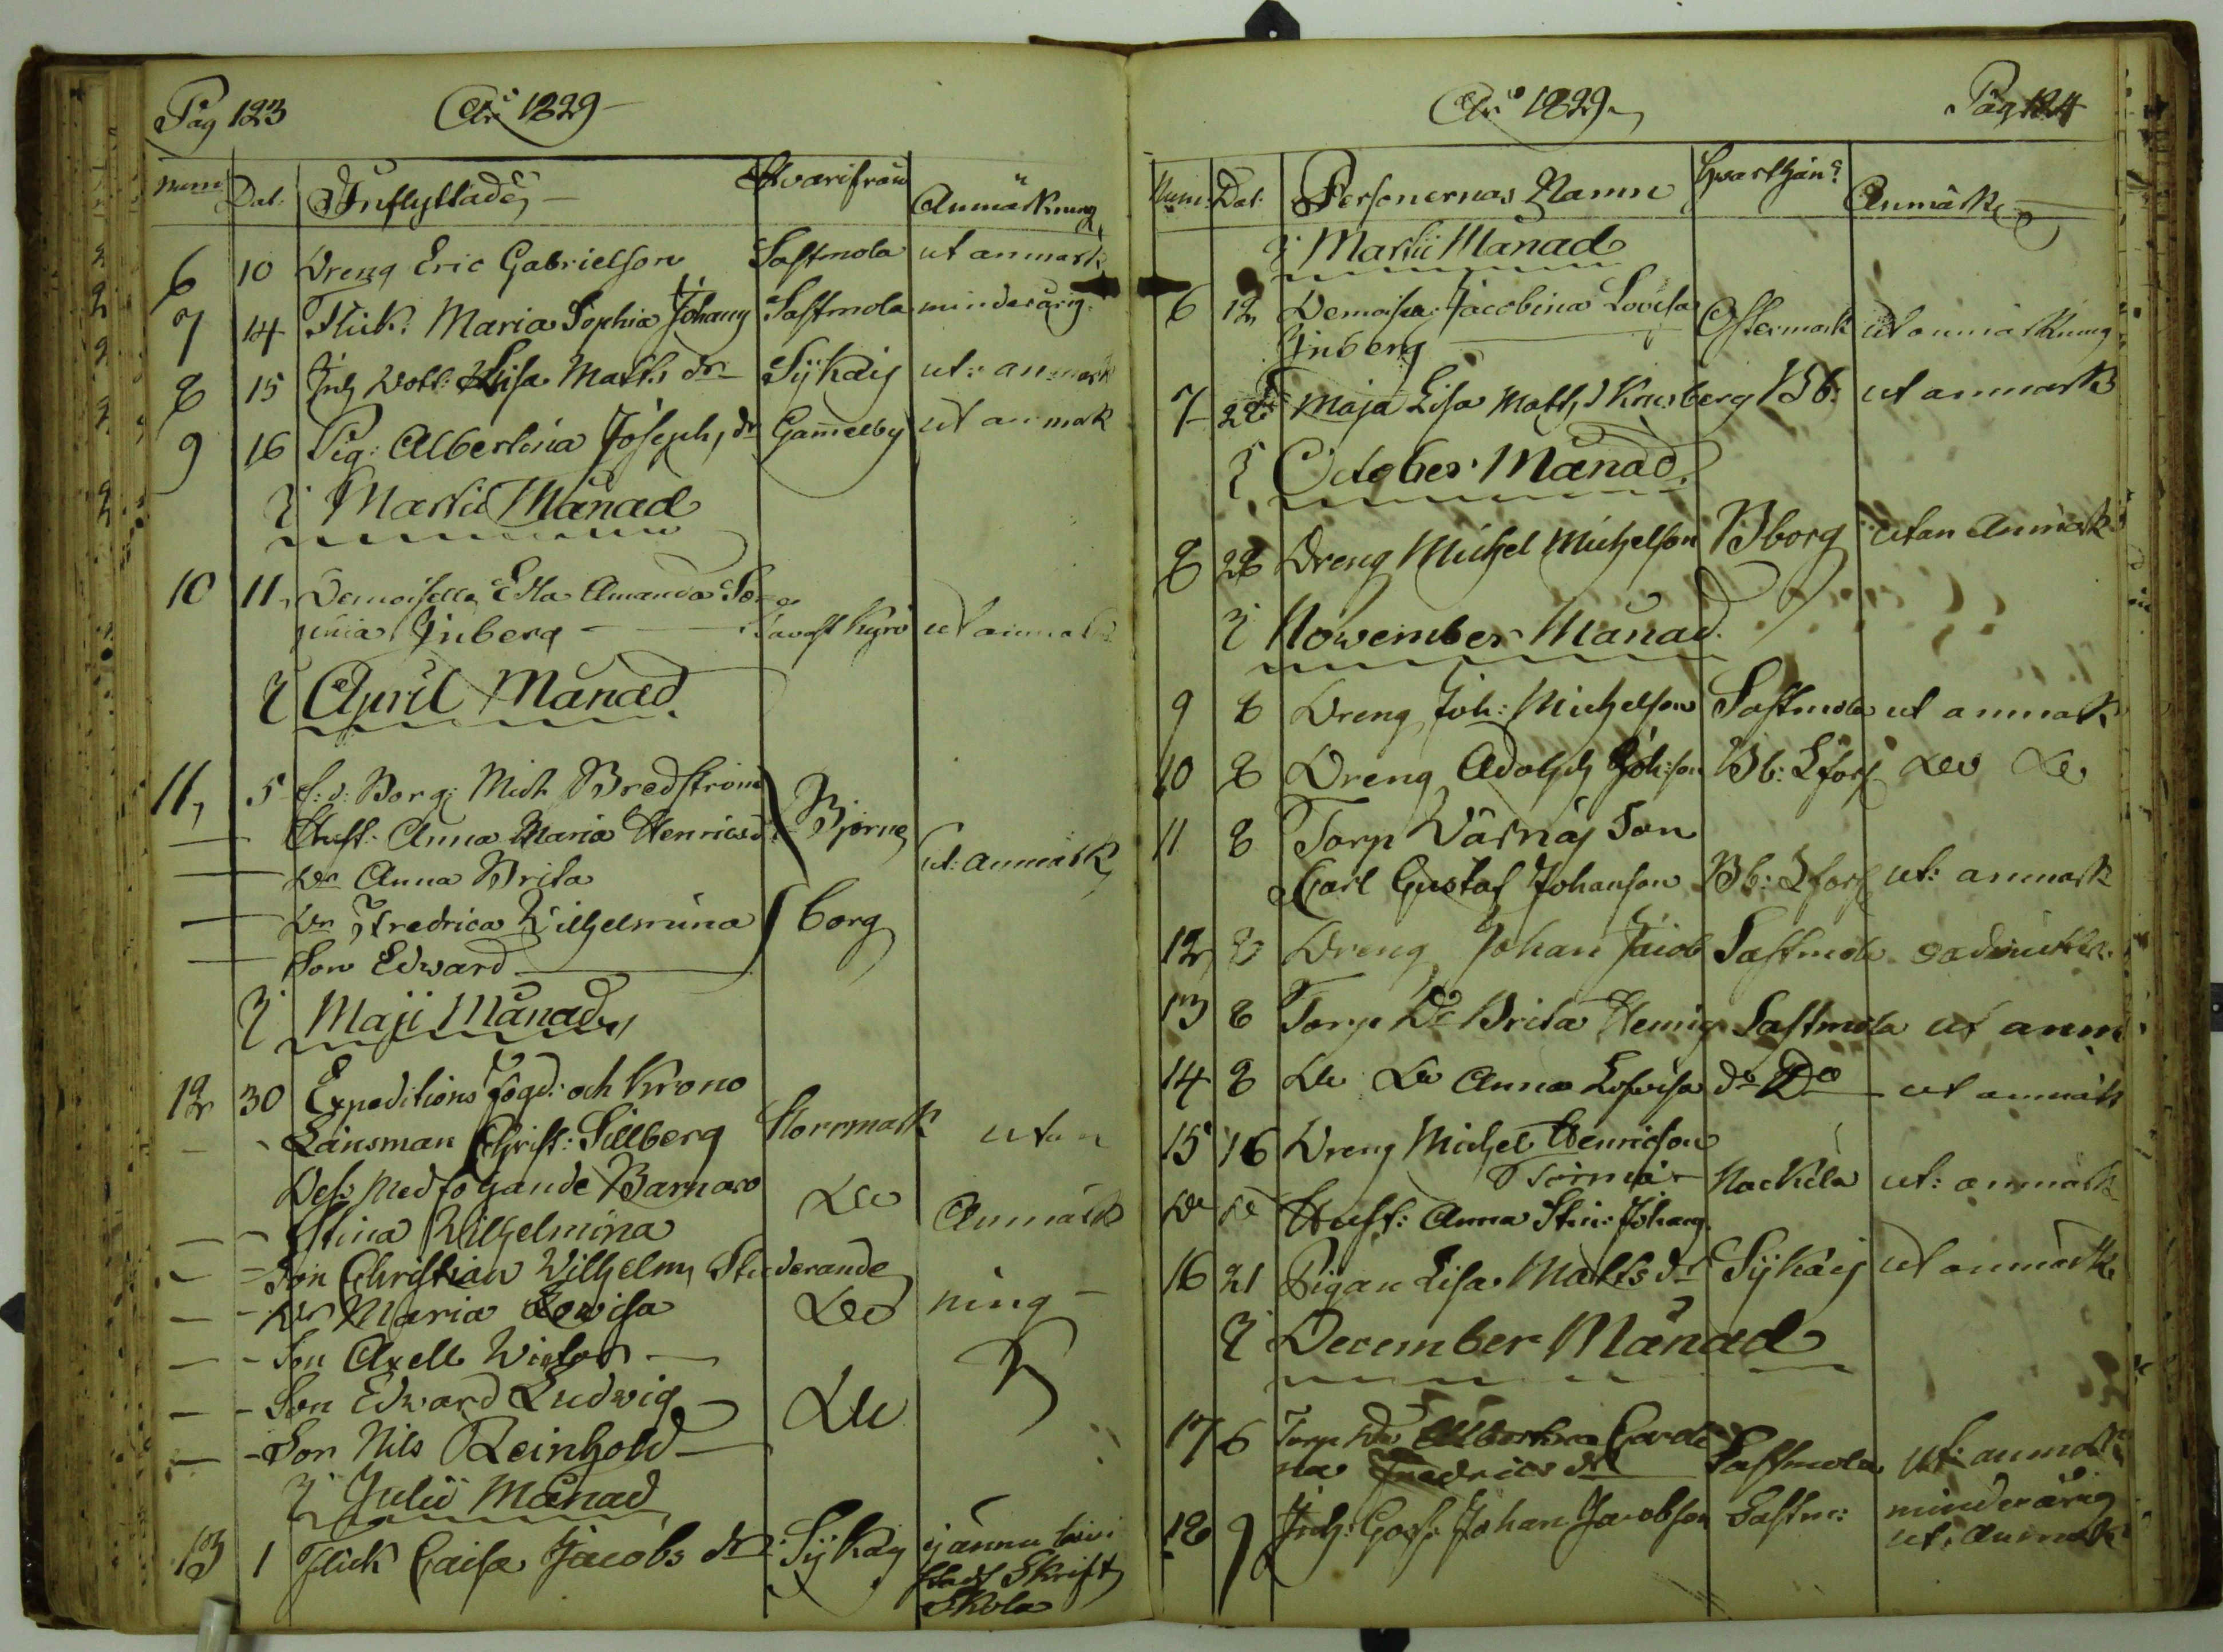 Pag 123
År 1829
Num
Dat.
Inflyttade
Hvarifrån
Anmärkning
6 10 Dreng Eric Gabrielson Sastmola ut anmärk
7 14 Flick: Maria Sophia Johans Sastmola minderårig
8 15 Inh Dott: Lisa Matts dr Sijkais ut: anmärk
9 16 Pig: Albertina Josephs dr Gamelby ut anmärk
I Martii Månad
10 11 Demoiselle Edla Amanda
Inberg Tavast Kyro ut anmärk
I April Månad
11 5 f: d: Borg: Mich Bredström
Hust: Anna Maria Henricsd: Björne
Dr Anna Brita ut: anmärk
Dr Fredrica Wilhelmina borg
Son Edward
I Maji Månad
12 30 Expeditions fogd: och Krono
Länsman Christ: Sillberg Storrmark utan
Dess medfögande Barn Do Anmärk
Stina Wilhelmina
Son Christian Wilhelm Studerande
Dr Maria Lowisa Do ning
Son Axell Wictor
Son Edward Ludwig Do
Son Nils Reinhold
I Julii Månad
13 1 Flick Caisa Jacobs dr Sijkais ej ännu
Skrift
Skola
År 1829
Pag 124
Num. Dat: Personernas Namn Anmärk
I Martii Månad
6 12 Demoise: Jacobina Lovisa
Inberg Östermark ut anmärkning
7 28 Maja Lisa Matts Krusberg Bb: ut anmärk
I October Månad
8 28 Dreng Michel Michelson Bborg utan Anmärk
I November Månad
9 8 Dreng Joh: Michelson Sastmola ut anmärk
10 8 Dreng Adolph Joh:son Bb: Lfors Do Do
11 8 Torp Son
Carl Gustaf Johanson Bb: Lfors ut: anmärk
12 8 Dreng Johan Jacob Sastmola
13 8 Torp Dr Brita Henrics Sastmola ut anm
14 8 Do Do Anna Lovisa do Do ut anmärk
15 16 Dreng Michel Henricson
Törnä Nackila ut: anmärk
Do Do Hust: Anna Stin: Johans
16 21 Pigan Lisa Matts dr Sijkais ut anmärk
I December Månad
17 6 Torp Dr Albertina
Fredrics dr Sastmola ut: anmärk
18 9 Inh: Goss: Johan Jacobson Sastm: minderårig
ut: anmärk